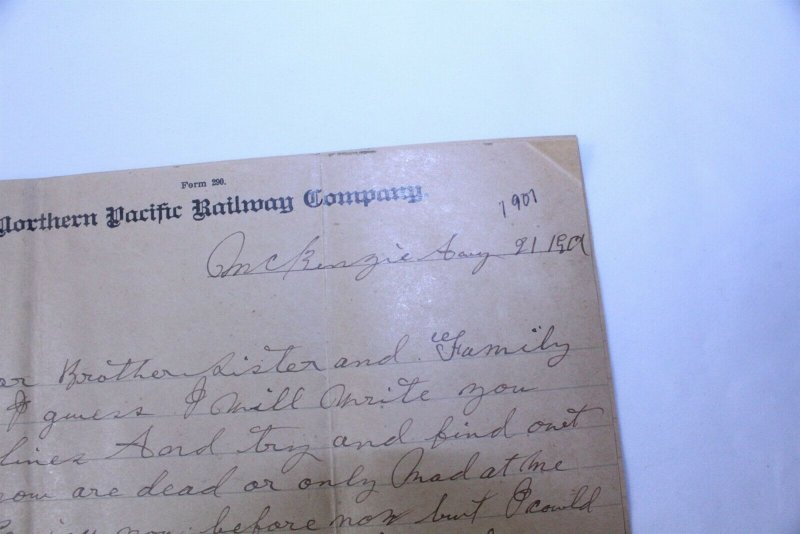 Form 290.
Northern Pacific Railway Company.
1901
McKenzie Aug 21 1901
ar Brother Sister and Family
I guess I will write you
lines And try and find out
you are dead or only Mad at Me
you before now but I could